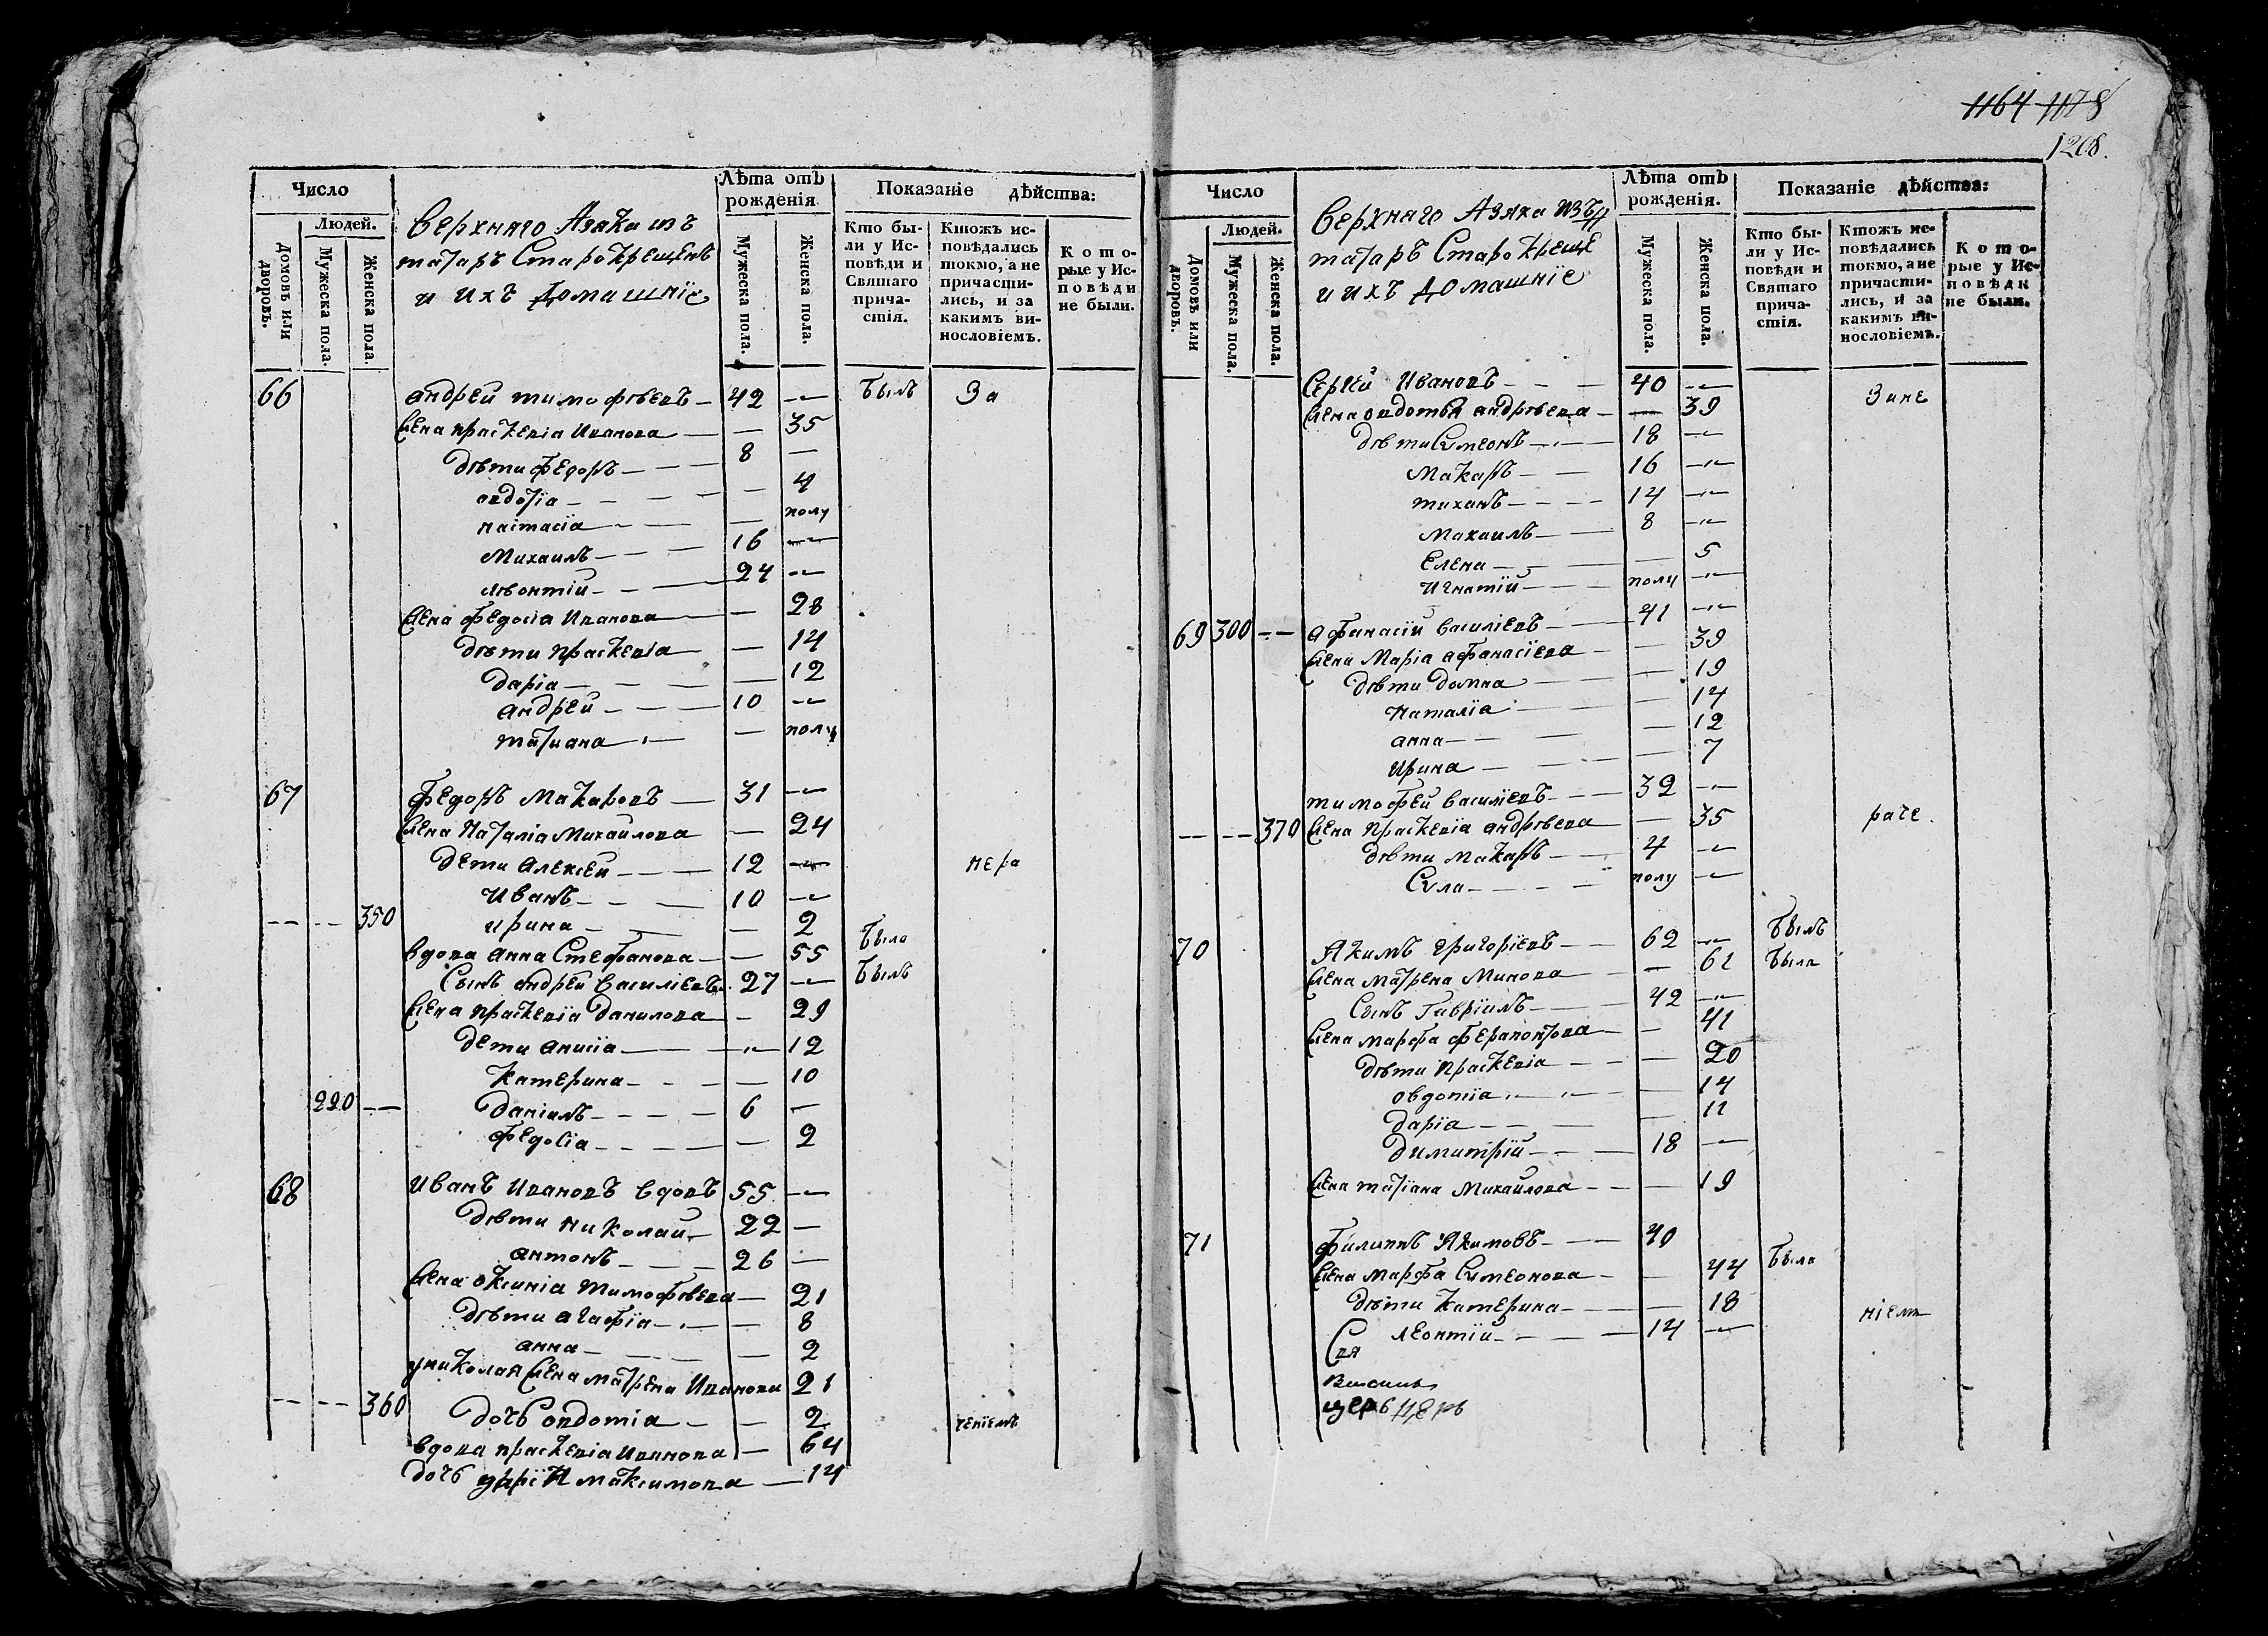 1164 1178
1208.
Число
Лѣта отъ рожденія
Показаніе дѣйства:
Людей.
Домовъ или дворовъ.
Мужеска пола.
Женска пола.
Верхняго Азяка изъ
татаръ Старокрещенъ
и ихъ домашніе
Мужеска пола.
Женска пола.
Кто бы-
ли у Ис-
повѣди и
Святаго
прича-
стія.
Ктожъ ис-
повѣдались
токмо, а не
причасти-
лись, и за
какимъ ви-
нословіемъ.
Кото-
рые у Ис-
повѣди
не были.
66 андрей тимофѣевъ 42 былъ За
жена праскевія Иванова 35
дѣти федоръ 8
овдотіа 4
настасіа полу
Михаилъ 16
лѣонтій 24
жена федосіа Иванова 28
дѣти праскевіа 14
даріа 12
андрей 10
татиана полу
67 федоръ Макаровъ 31
жена Наталіа Михаилова 24
дети алексей 12 нера
Иванъ 10
350 ирина 2
вдова анна Стефанова 55 была
Сынъ андрей василіевъ 27 былъ
жена праскевіа данилова 29
дети анисіа 12
катерина 10
220 даніилъ 6
федосіа 2
68 иванъ ивановъ вдовъ 55
дѣти николай 22
антонъ 26
жена оксиніа тимофѣева 21
дѣти агафіа 8
анна 2
у николая жена матрена Иванова 21
360 дочь овдотіа 2 ченіемъ
вдова праскевіа иванова 64
дочь максимова 14
Число
Лѣта отъ рожденія.
Показаніе дѣйства:
Людей.
Домовъ или дворовъ.
Мужеска пола.
Женска пола.
Верхняго Азяка изъ
татаръ Старокреще
и ихъ домашніе
Мужеска пола.
Женска пола.
Кто бы-
ли у Ис-
повѣди и
Святаго
прича-
стія.
Ктожъ ис-
повѣдались
токмо, а не
причасти-
лись, и за
какимъ ви-
нословіемъ.
Кото-
рые у Ис-
повѣди
не были.
Сергей Ивановъ 40 Зане
жена овдотья андрѣева 39
дѣти Сумеонъ 18
Макаръ 16
тиханъ 14
Михаилъ 8
Елена 5
Игнатій полу
69 300 афанасій василіевъ 41
жена Маріа афанасіева 39
дѣти домна 19
Наталіа 14
анна 12
Ирина 7
тимофей василіевъ 32
370 жена праскевіа андрѣева 35 раче.
дѣти Макаръ 4
Сула полу
70 Якимъ григоріевъ 62 былъ
жена матрена Минова 61 была
Сынъ Гавріилъ 42
жена марфа ферапонтова 41
дѣти праскевіа 20
овдотіа 14
даріа 11
димитрій 18
жена татіана Михайлова 19
71 филиппъ Якимовъ 40
жена марфа Сумеонова 44 была
дѣти катерина 18
леонтій 14 ніемъ
церь церь